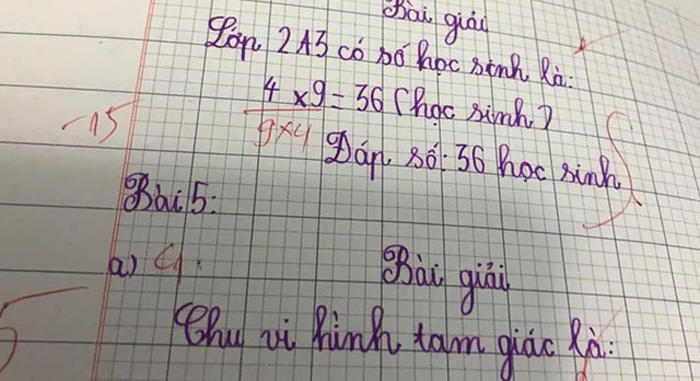 Bài giải
Lớp 2A3 có số học sinh là:
4 x 9 = 36 (học sinh)
-15
9x4
Đáp số: 36 học sinh
Bài 5:
a)
Bài giải
Chu vi hình tam giác là: